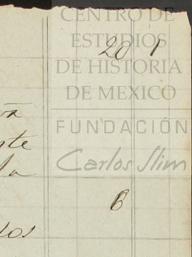 CENTRO DE
ESTUDIOS
20 1
DE HISTORIA
DE MEXICO
FUNDACIÓN
Carlos Slim
la
6